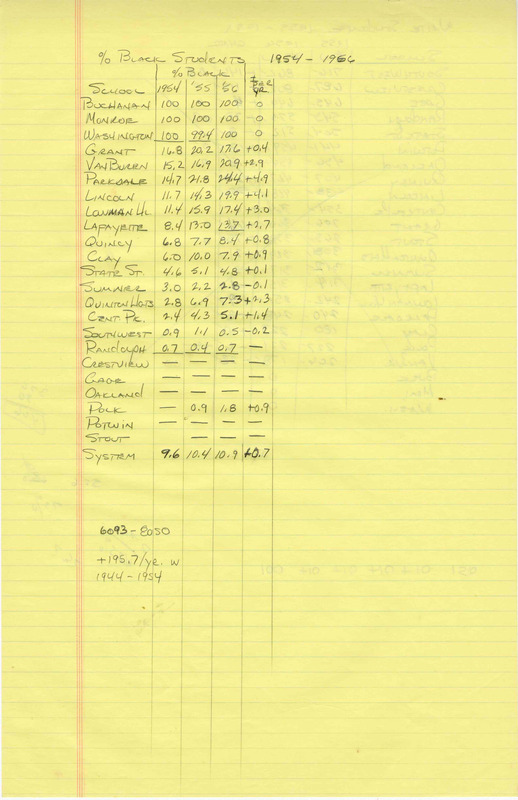 % BLACK STUDENTS 1954 - 1956
% BLACK
SCHOOL 1954 '55 '56 YR
BUCHANAN 100 100 100 0
MONROE 100 100 100 0
WASHINGTON 100 99.4 100 0
GRANT 16.8 20.2 17.6 +0.4
VAN BUREN 15.2 16.9 20.9 +2.9
PARKDALE 14.7 21.8 24.4 +4.9
LINCOLN 11.7 14.3 19.9 +4.1
LOWMAN HL. 11.4 15.9 17.4 +3.0
LAFAYETTE 8.4 13.0 13.7 +2.7
QUINCY 6.8 7.7 8.4 +0.8
CLAY 6.0 10.0 7.9 +0.9
STATE ST. 4.6 5.1 4.8 +0.1
SUMNER 3.0 2.2 2.8 -0.1
QUINTON HGTS 2.8 6.9 7.3 +2.3
CENT. PK. 2.4 4.3 5.1 +1.4
SOUTHWEST 0.9 1.1 0.5 -0.2
RANDOLPH 0.7 0.4 0.7 —
CRESTVIEW — — — —
GAGE — — — —
OAKLAND — — — —
POLK — 0.9 1.8 +0.9
POTWIN — — — —
STOUT — — —
SYSTEM 9.6 10.4 10.9 +0.7
6093 - EOSO
+195.7/yr. W
1944 - 1954